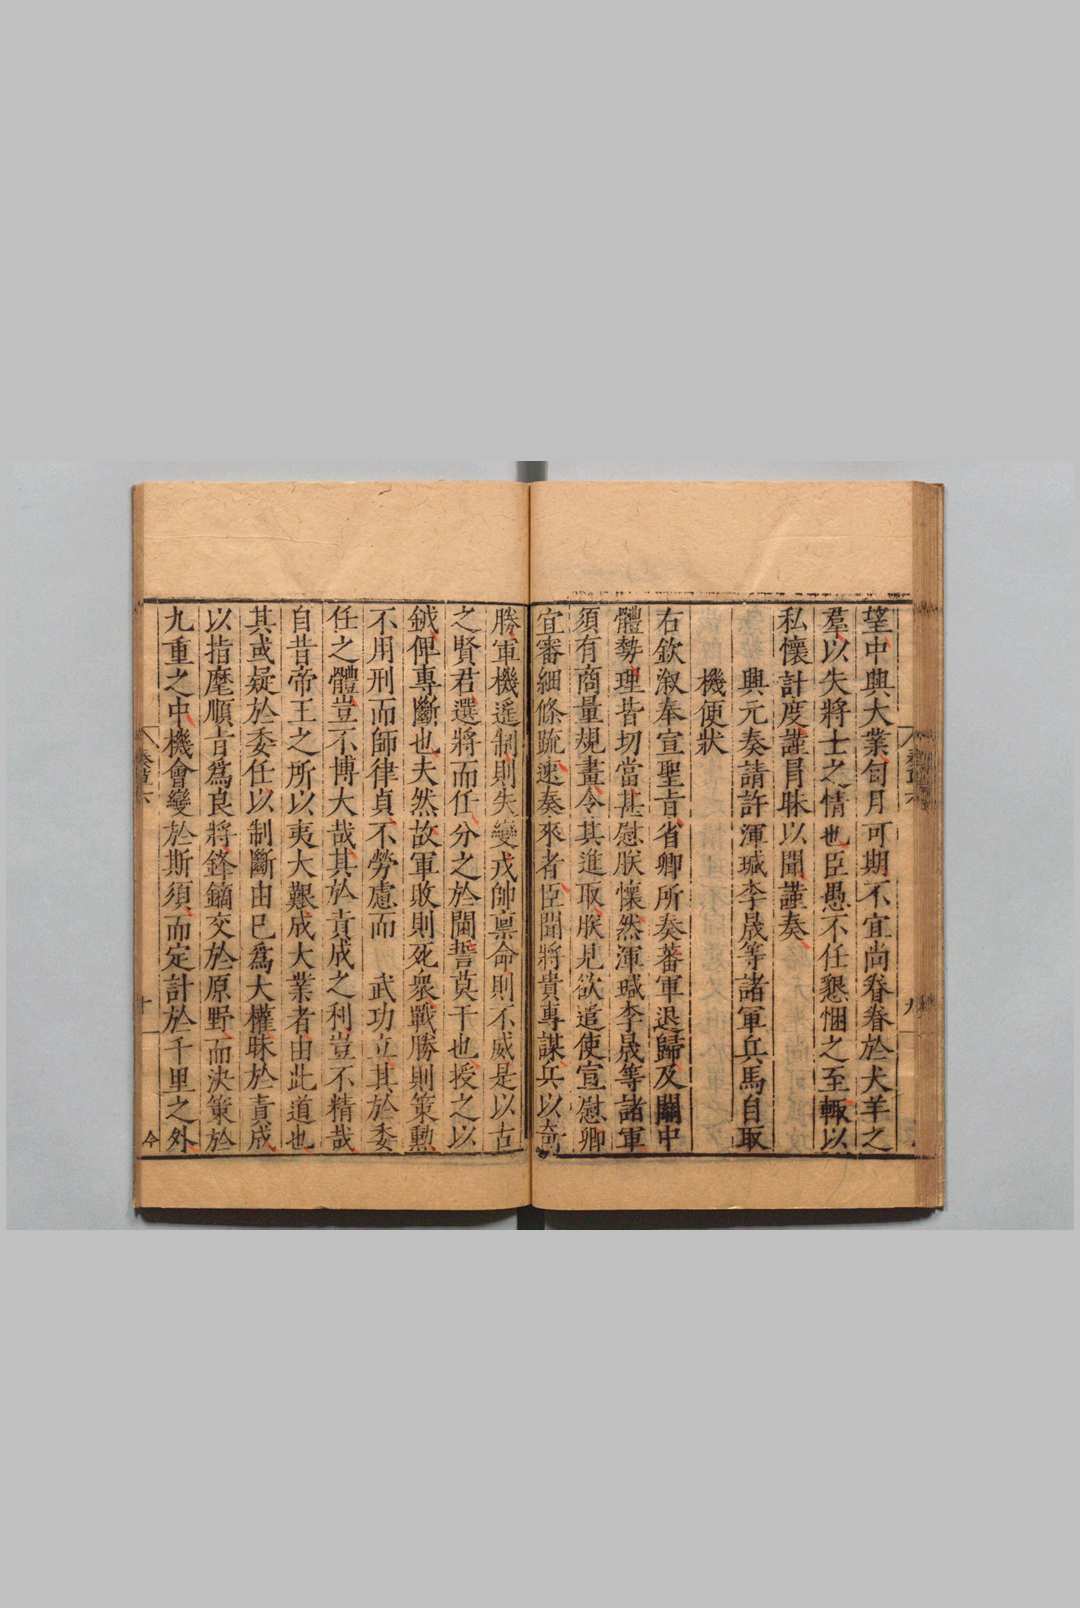 望中興大業旬月可期不宜尚眷眷於犬羊之
羣以失將士之情也臣愚不任懇悃之至輒以
私懷計度謹冐昧以聞謹奏
興元奏請許渾瑊李晟等諸軍兵馬自取
機便狀
右欽溆奉宣聖旨省卿所奏蕃軍退歸及關中
體勢理皆切當甚慰朕懷然渾瑊李晟等諸軍
須有商量規畫令其進取朕見欲遣使宣慰卿
宜審細條疏速奏來者臣聞將貴專謀兵以奇
勝軍機遥制則失變戎帥禀命則不威是以古
之賢君選將而任分之於閫誓莫干也授之以
鉞俾專斷也夫然故軍敗則死衆戰勝則策勲
不用刑而師律貞不勞慮而武功立其於委
任之體豈不博大哉其於責成之利豈不精哉
自昔帝王之所以夷大艱成大業者由此道也
其或疑於委任以制斷由巳爲大權昧於責成
以指麾順旨爲良將鋒鏑交於原野而決策於
九重之中機會變於斯須而定計於千里之外
奏草六
十
九